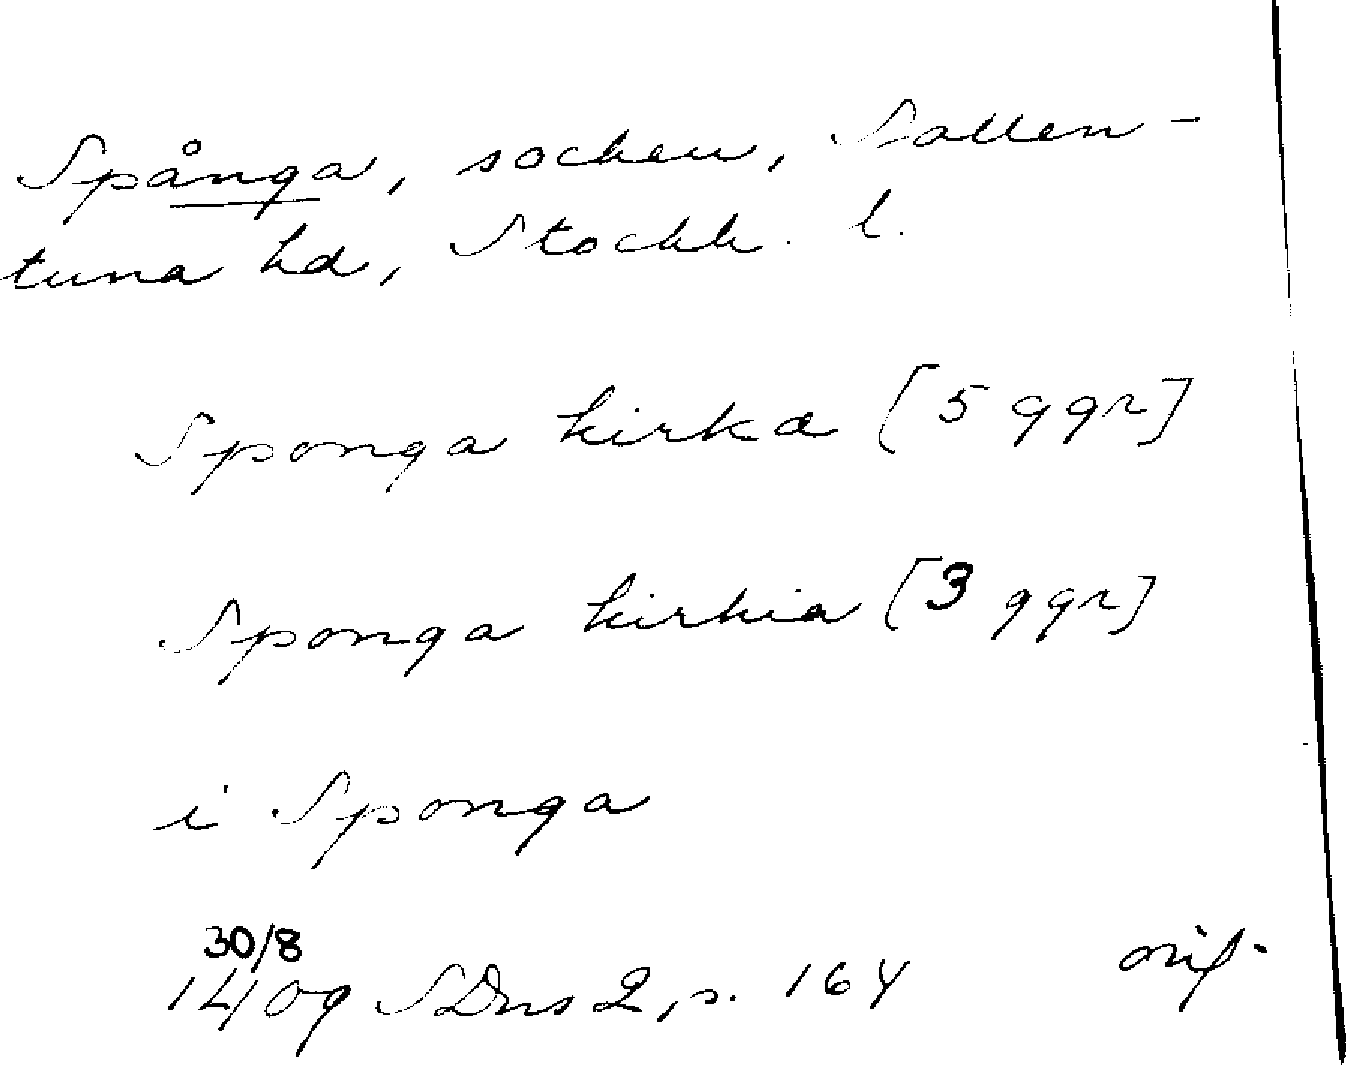 Spånga, socken, Sollen-
tuna hd, Stockh. l.
Sponga kirka [5 ggr]
Sponga kirkia [3 ggr]
i Sponga
30/8
1409 SDns 2, s. 164
orig.